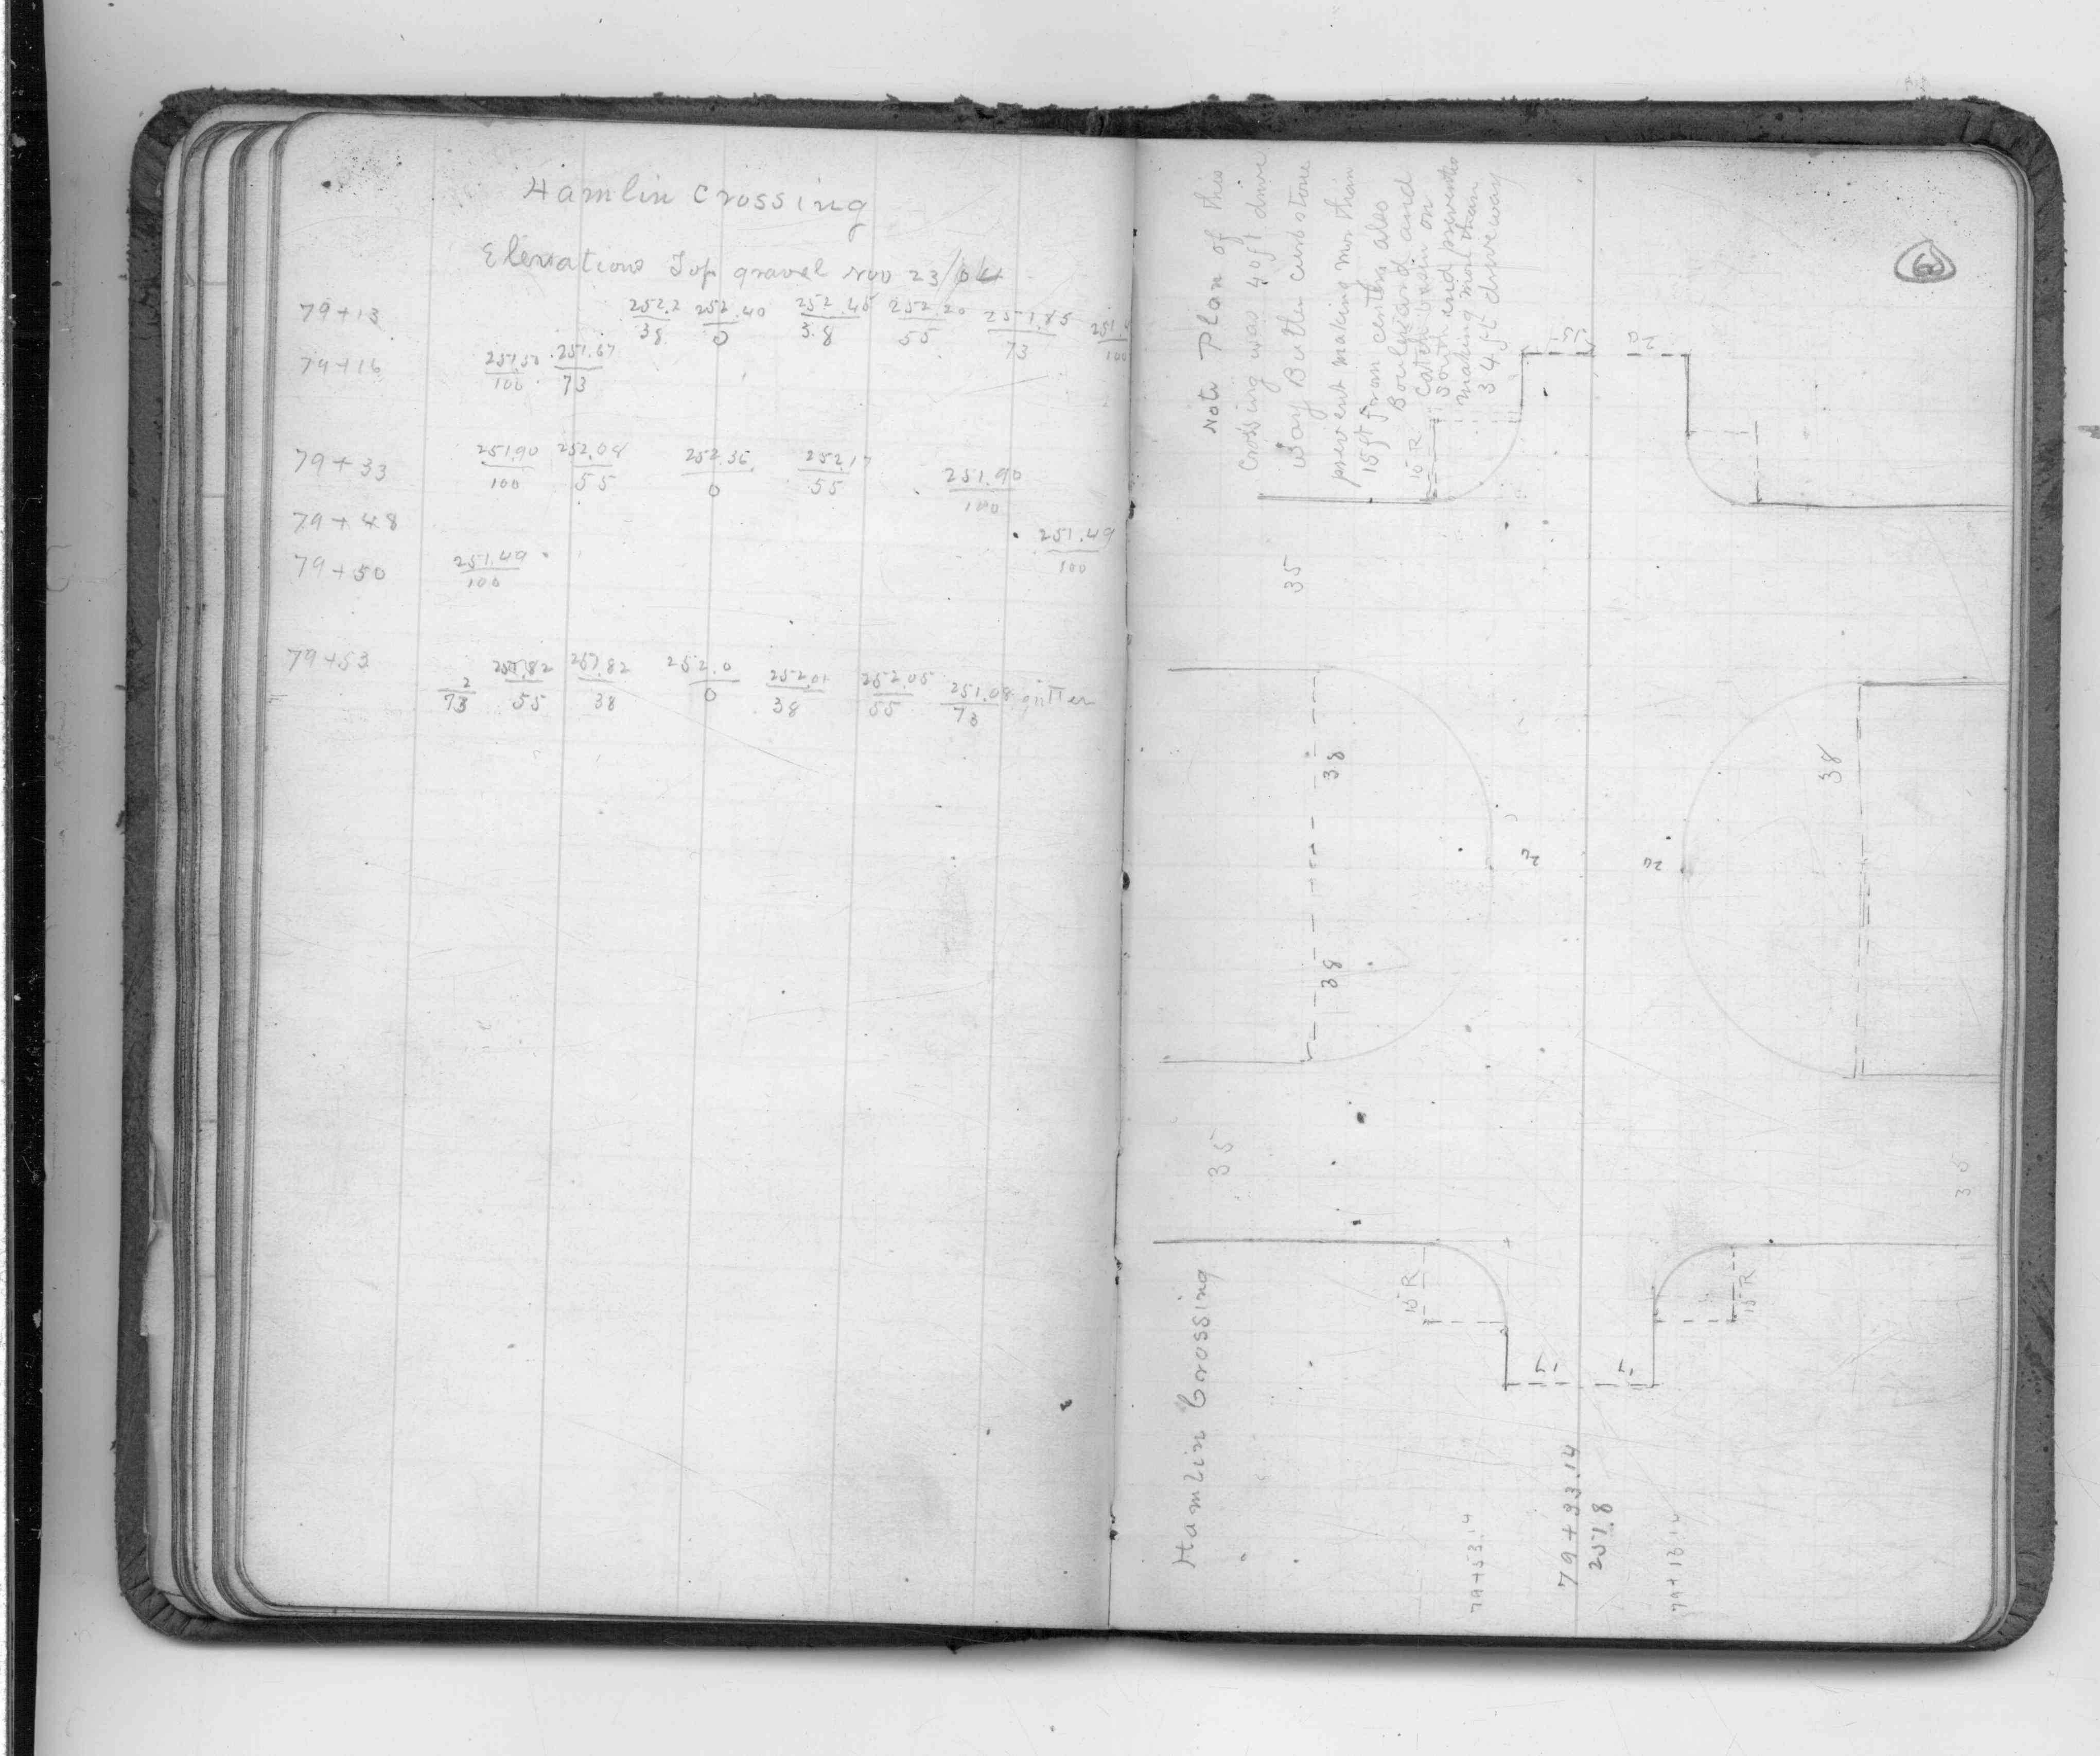 Hamlin Crossing
Elevations Top gravel Nov 23/04
79+13 252.2/38 252.40/0 252.45/38 252.20/55 251.85/73
79+16 251.67/73
79+33 251.90/100 252.08/55 252.36/0 252.17/55 251.90/100
79+48 251.49/100
79+50 251.49/100
79+53 2/73 251.82/55 251.82/38 252.0/0 252.01/38 252.05/55 251.08/73 gutter
Note Plan of this
Crossing was 40ft drive
way But the curb stone
prevent making mor than
15 ft from center also
Boulevard and
Catch basin on
South end prevents
making more than
34 ft driveway
15 R
35
38
38
38
35
35
15 R
15 R
Hamlin Crossing
79+53.14
79+33.14
251.8
79+13.14